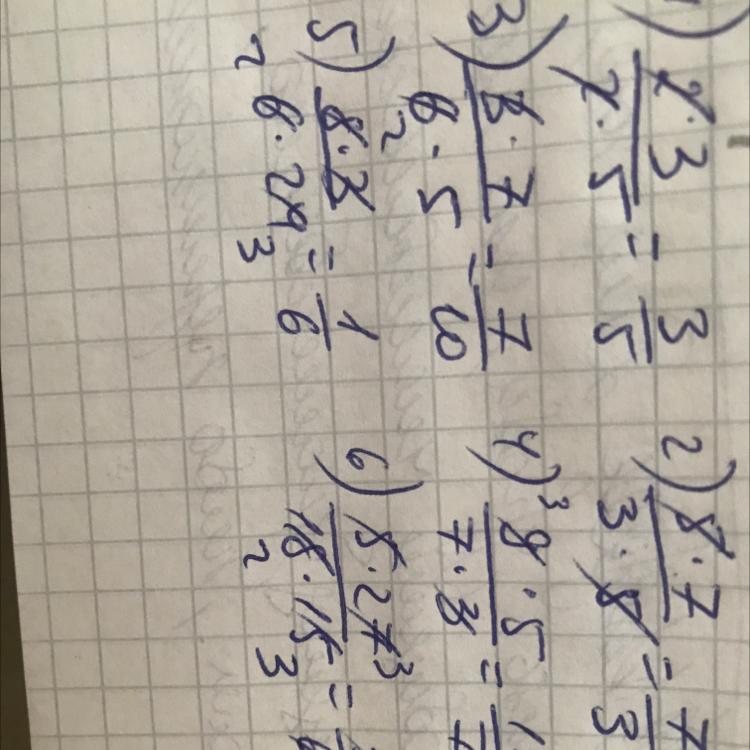 2·3/7·5 = 3/5
2) 8·7/3·8 = 7/3
3) 3·7/6·5 2 = 7/10
4) 3 9·5/7·3 = 1 /7
5) 8·3/6·24 2 3 = 1/6
6) 5·27 3/18·15 2 3 =